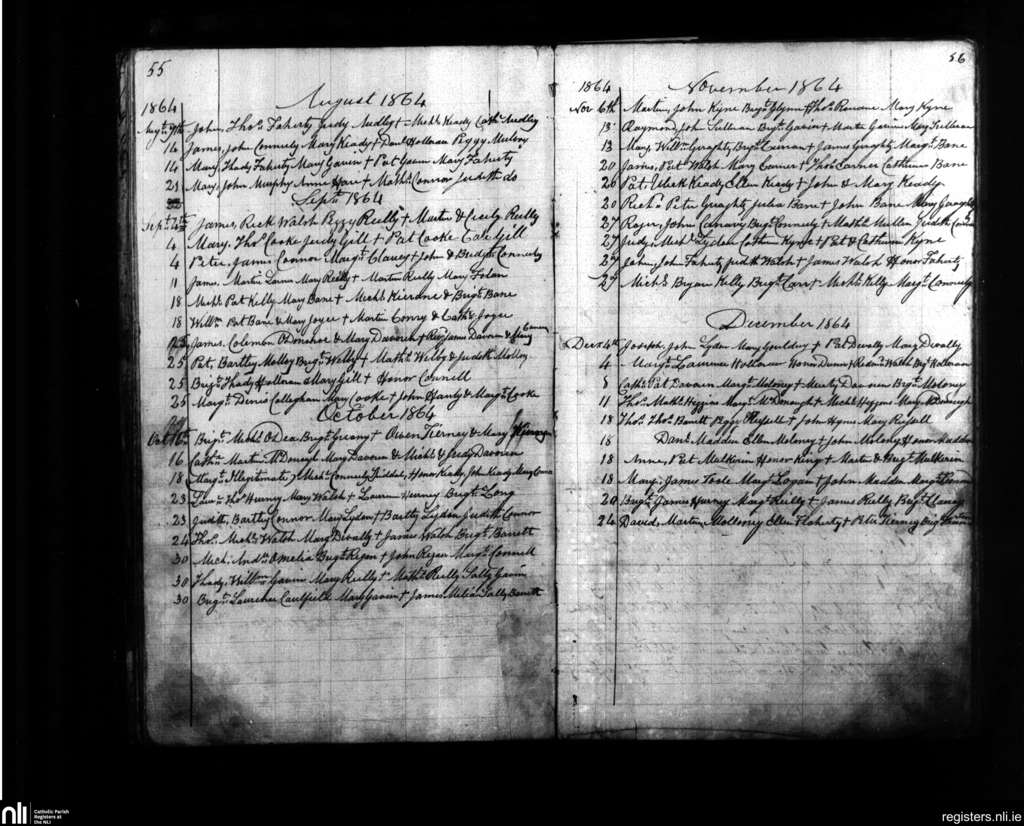 55
August 1864
1864
Augt. 7th John, Thos. Faherty Judy Nudly + Michl. Keady Cath. Nudley
14 James, John Connely Mary Keady + Danl. Holleran Peggy Mulroy
14 Mary, Thady Faherty Mary Gavin + Pat Gavin Mary Faherty
21 Mary, John Murphy Anne Hare + Mathw. Connor Judith do
Sept. 1864
Sept. 4th James, Rick Walsh Peggy Reilly + Martin & Cecily Reilly
4 Mary, Thos. Cooke Judy Gill + Pat Cooke Cate Gill
4 Peter, James Connor Margt. Clancy + John & Bridgt. Connerly
11 James, Martin Larvin Mary Reilly + Martin Reilly Mary Folan
18 Michl. Pat Kelly Mary Bane + Michl. Kirrane & Brigt. Bane
18 Willm. Pat Bane & Mary Joyce + Martin Conry & Cathe. Joyce
James, Colemon O'Donohoe & Mary Davoren + Revd. James Davoren &
25 Pat, Bartley Molloy Brigt. Welby + Mathw. Welby & Judith Molloy
25 Brigt. Thady Holloran & Mary Gill + Honor Connell
25 Margt. Dennis Calleghan Mary Cooke + John Hanly & Margt. Cooke
October 1864
Octr. 16th Brigt. Michl. O'Dea Brigt. Greany + Owen Tierney & Mary
16 Cathn. Martin McDonagh Mary Davoren & Michl. & Judy Davoren
18 Margt. (Illegitimate) Michl. Connerly Honor Keady, John Keady Mary
23 Laur. Thos. Hurney Mary Walsh + Laurence Hurney Brigt. Long
23 Judith, Bartley Connor Mary Lydon + Bartly Lydon Judith Connor
24 Thos. Michl. Walsh Mary Devally + James Walsh Brigt. Barrett
30 Mich. Andw. Amelia Brigt. Regan + John Regan Margt. Connell
30 Thady, Willm. Gavin Mary Reilly + Mathw. Reilly Sally Gavin
30 Brigt. Laurence Caulfield Mary Gavin + James Melia Sally Barrett
56
1864 November 1864
Nov 6th Martin, John Kyne Brigt. Flynn + Thos. Ruane Mary Kyne
13 Raymond, John Sullivan Brigt. Gavin + Martin Gavin Mary Sullivan
13 Mary, Willm. Geraghty Brigt. Curran + James Geraghty Margt. Bane
20 James, Pat Walsh Mary Earner + Thos. Earner Catherine Bane
26 Pat, Ulick Keady Ellen Keady + John & Mary Keady
20 Richd. Peter Geraghty Julia Bane + John Bane Mary
27 Roger, John Canavy Brigt. Connerly + Mathw. Mullen Judith
27 Judy, Michl. Lydon Cathn. Kyne + Pat & Catherine Kyne
27 John, John Faherty Judith Walsh + James Walsh Honor Faherty
27 Michl. Bryan Kelly Brigt. Carr + Michl. Kelly Margt. Connerly
December 1864
Decr. 4th Joseph, John Lyden Mary Goulding + Pat Devally Mary Devally
4 Margt. Laurence Holloran Honor Dunne + Redmd. Walsh Brigt. Holloran
8 Cathe. Pat Davoren Margt. Moloney + Davoren Brigt. Moloney
11 Thos. Mathw. Higgins Margt. McDonagh + Michl. Higgins Mary McDonagh
18 Thos. Thos. Barrett Peggy Russell + John Hynes Mary Russell
18 Danl. Madden Ellen Moloney + John Moloney Honor Madden
18 Anne, Pat Mulkerin Honor King + Martin & Brigt. Mulkerin
18 Mary, James Toole Margt. Logan + John Madden Margt.
20 Brigt. James Hurney Margt. Reilly + James Reilly Brigt. Clancy
24 David, Martin Molloney Ellen Flaherty + Peter Tierney Brigt.
nli
Catholic Parish
Registers at
the NLI
registers.nli.ie